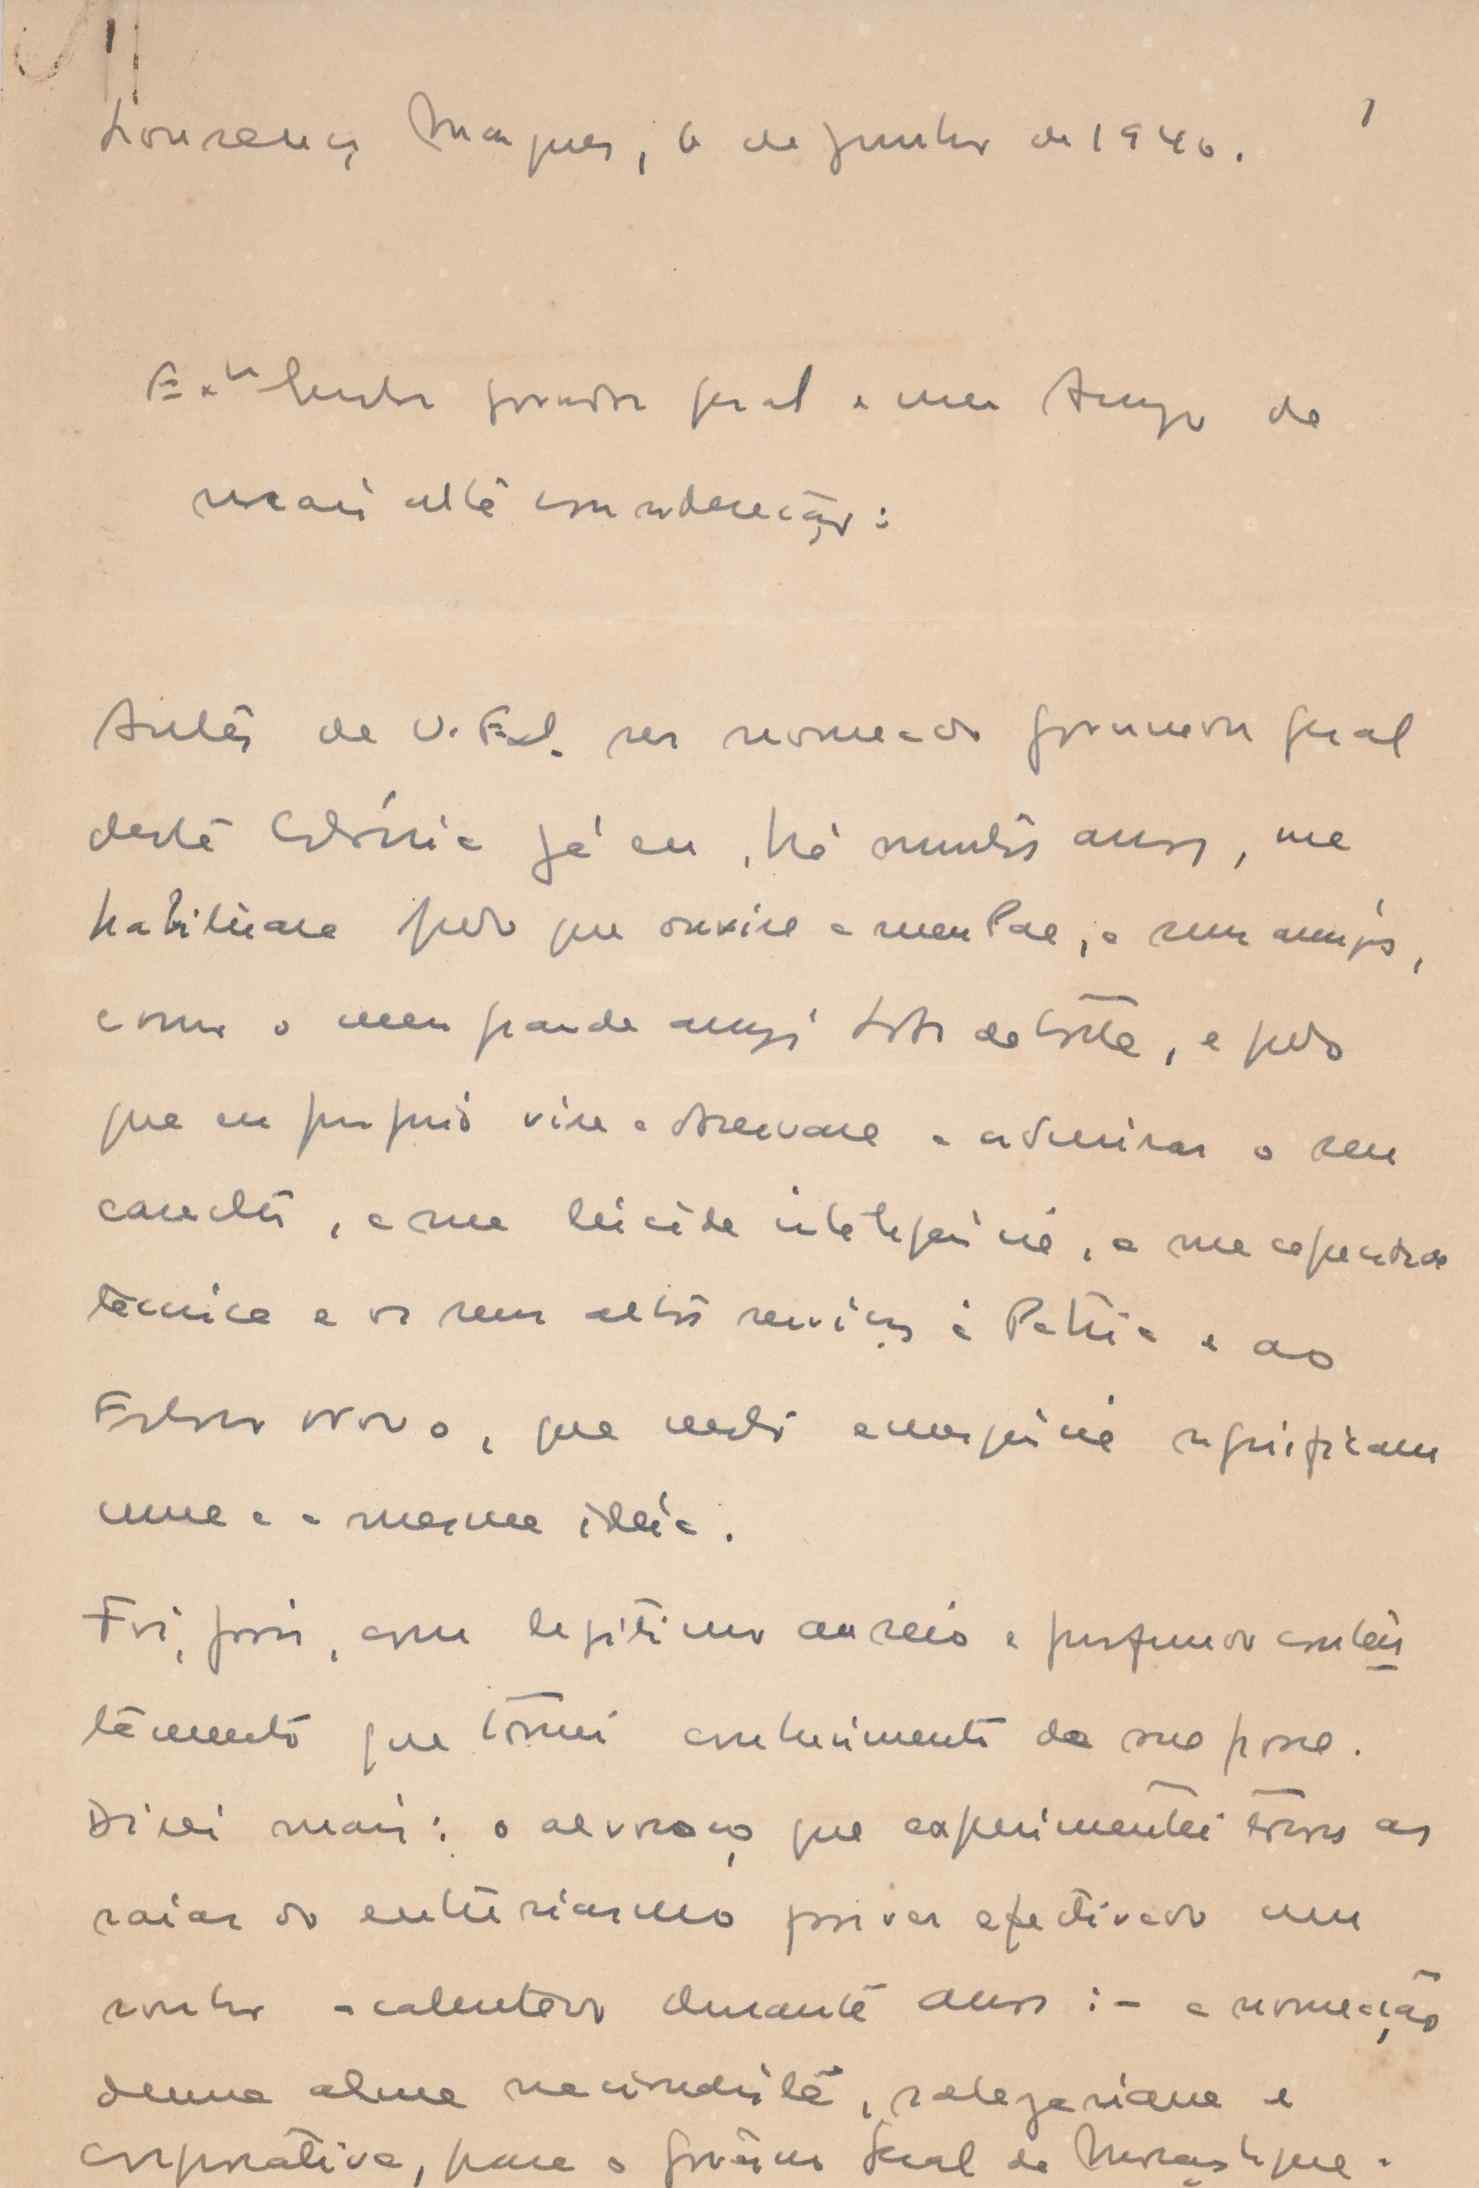 1
Lourenço Marques, 6 de Junho de 1946.
Ex.mo Senhor governador geral e meu Amigo da
mais alta consideração:
Antes de V. Exl. ser nomeado governador geral
desta Colónia já eu, há muitos anos, me
habituara pelo que ouvira a meu Pae, a seus amigos,
como o meu grande amigo da Costa, e pelo
que eu proprio vira a observar e admirar o seu
caracter, a sua lucida inteligencia, a sua capacidade
tecnica e os seus altos serviços á Patria e ao
Estado Novo, que nesta emergencia significam
uma e a mesma ideia.
Foi, pois, com legitimo anseio e profundo conten
tamento que tomei conhecimento da sua posse.
Direi mais: o alvoroço que experimentei tocou as
raias do entusiasmo por ver efectivado um
sonho acalentado durante anos :- a nomeação
duma alma nacionalista, salazariana e
corporativa, para o Govêrno Geral de Moçambique.